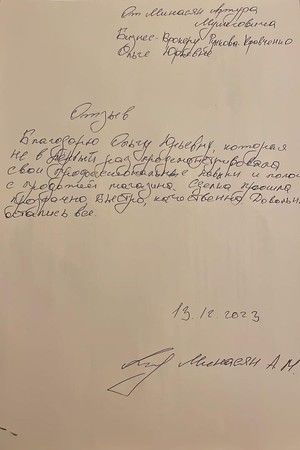 От Минасян Артура
Мушеговича
Бизнес-Брокеру Кравченко
Ольге Юрьевне
Отзыв
Благодарю Ольгу Юрьевну, которая
не в первый раз продемонстрировала
свои профессиональные навыки и помог
с продажей магазина. Сделка прошла
прозрачно, быстро, качественно. Довольн
остались все.
13.12.2023
Минасян А.М.